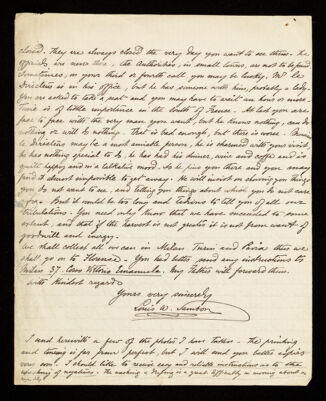 closed. They are always closed the very day you want to see them. The
officials are never there, the Authorities, in small towns, are not to be found
sometimes, on your third or fourth call you may be lucky, Mr le
Directeur is in his office, but he has someone with him, probably a lady.
You are asked to take a seat and you may have to wait an hour or more.
Time is of little importance in the South of France. At last you are
face to face with the very man you want, but he knows nothing, can do
nothing or will do nothing. That is bad enough, but there is worse.
le Directeur may be a most amiable person, he is charmed with your visit
he has nothing special to do, he has had his dinner, wine and coffee and is
quite happy and in a talkative mood. So he has you there and you may
find it almost impossible to get away. He will insist on showing you things
you do not want to see, and telling you things about which you do not care
for. But it would be too long and tedious to tell you of all our
tribulations. You need only know that we have succeeded to some
extent, and that if the harvest is not greater it is not from want of
goodwill and energy.
We shall collect all we can in Milan Turin and Pavia then we
shall go on to Florence. You had better send any instructions to
Milan 37. Corso Vittorio Emanuele. Any letters will forward them.
With kindest regards
Yours very sincerely
Louis W. Sambon
I send herewith a few of the photos I have taken. The printing
and toning is far from perfect, but I will send you better copies
very soon. I should like to receive easy and reliable instructions as to the
of negatives. The washing &amp; drying is a great difficulty in moving about